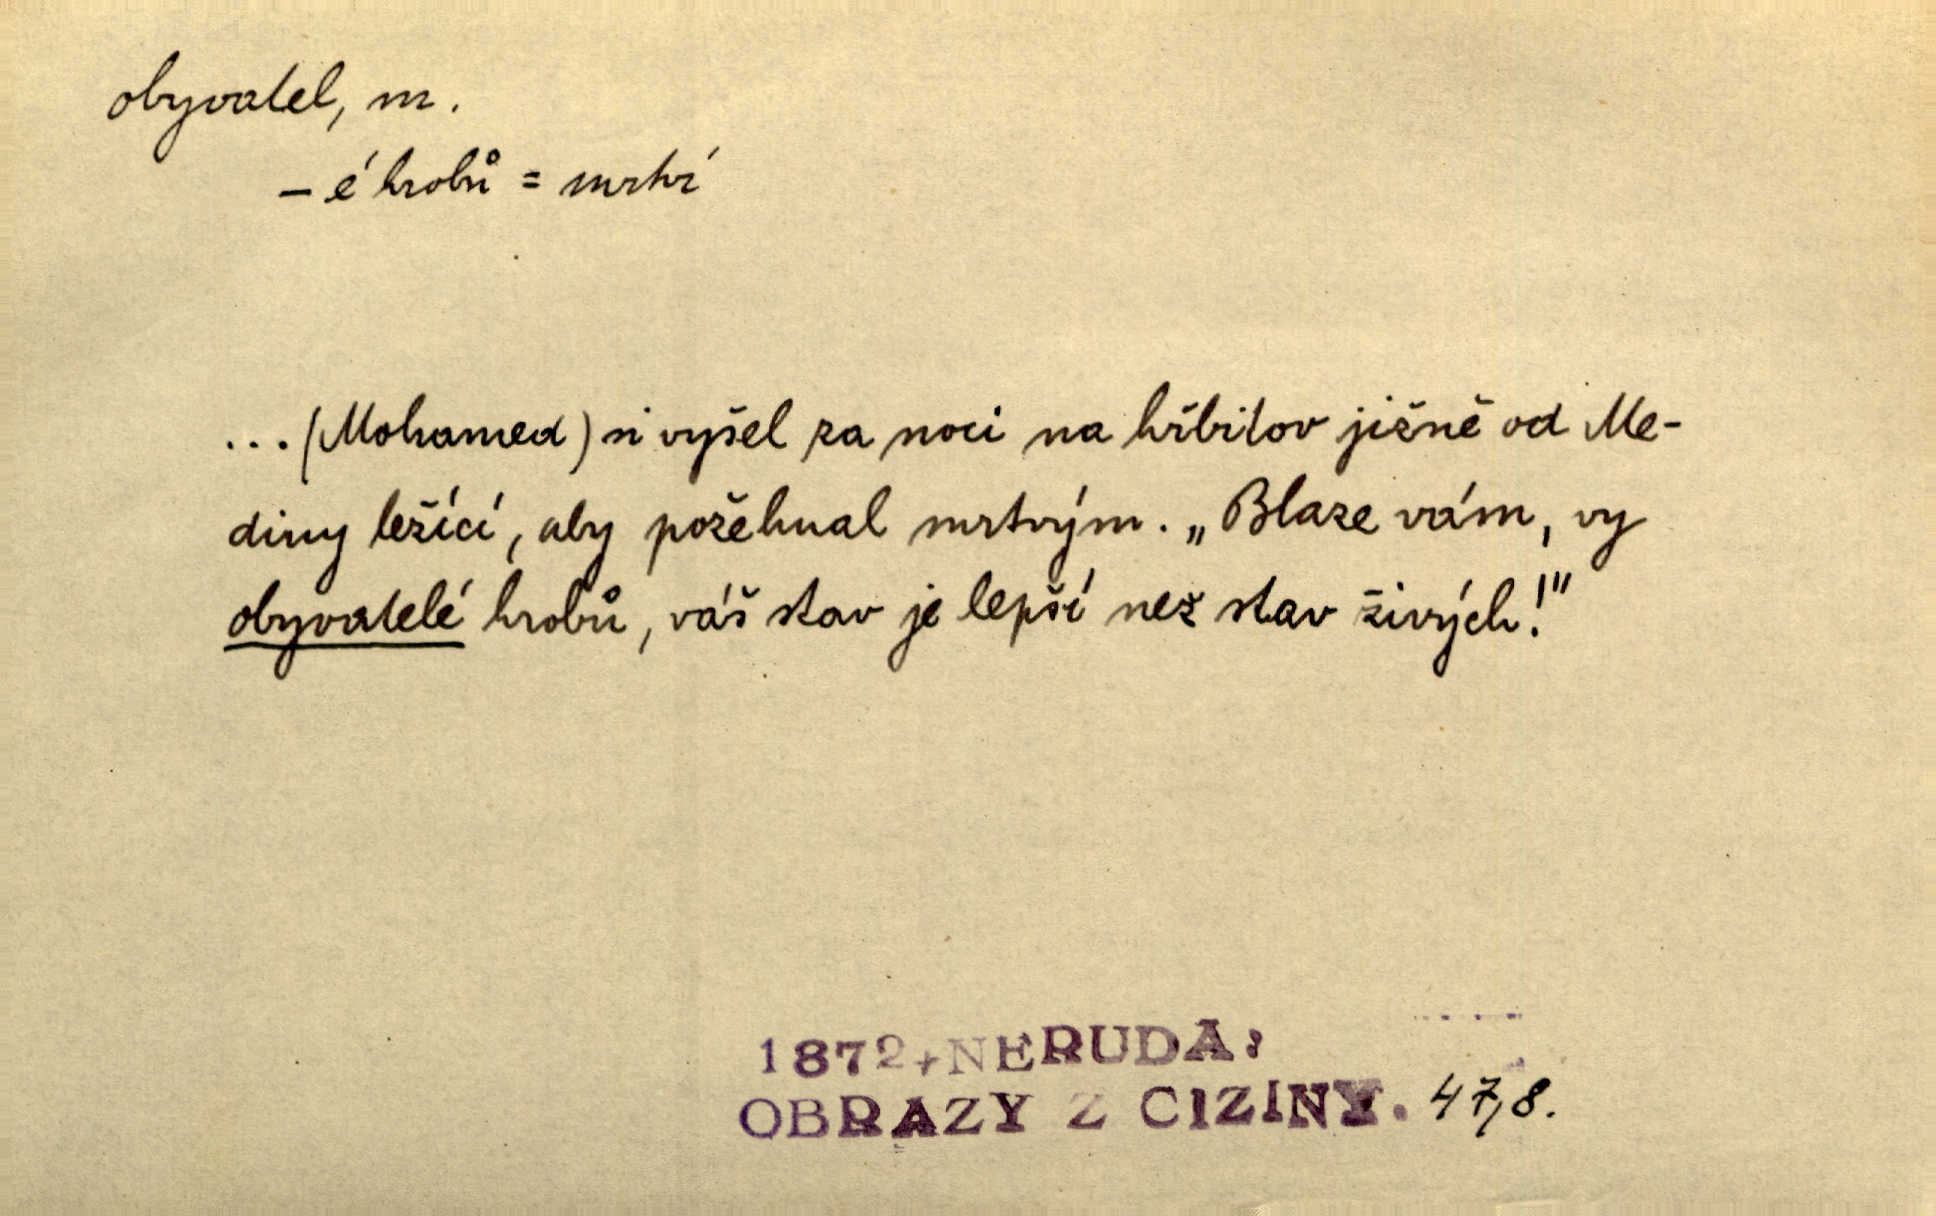 obyvatel, m.
– é hrobů = mrtví
...(Mohamed) si vyšel za noci na hřbitov jižně od Me-
diny ležící, aby požehnal mrtvým. „Blaze vám, vy
obyvatelé hrobů, váš stav je lepší než stav živých!"
1872, NERUDA:
OBRAZY Z CIZINY. 47,8.